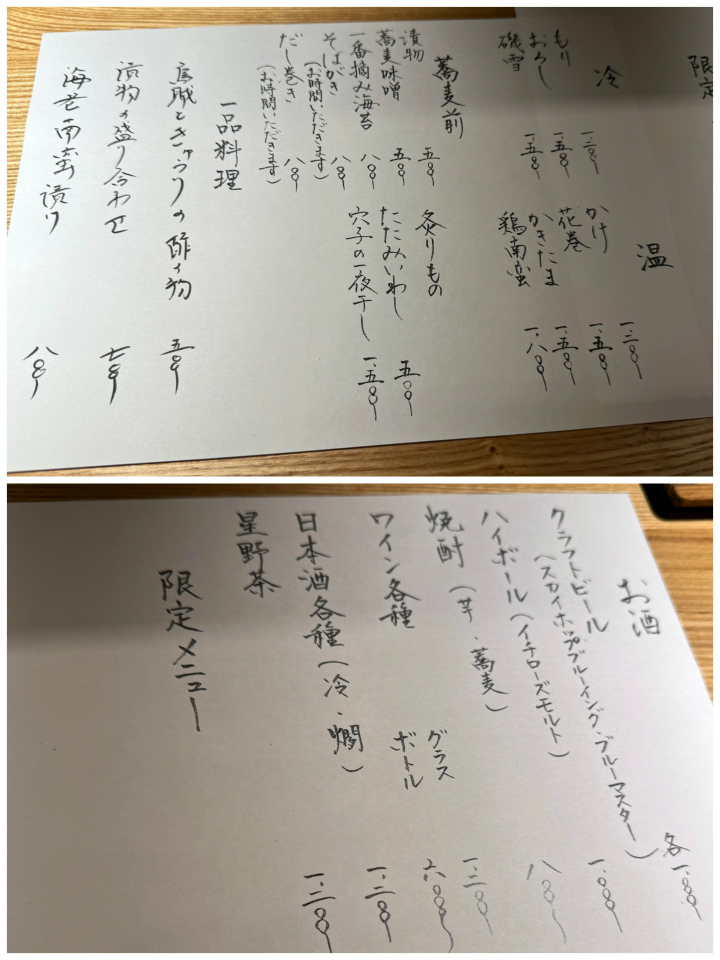 限定
冷
もり 一.二〇〇
おろし 一.五〇〇
磯雪 一.五〇〇
温
かけ 一.二〇〇
花巻 一.五〇〇
かきたま 一.五〇〇
鶏南蛮 一.八〇〇
蕎麦前
漬物 五〇〇
蕎麦味噌 五〇〇
一番摘み海苔 八〇〇
そばがき 八〇〇
(お時間いただきます)
だし巻き 八〇〇
(お時間いただきます)
炙りもの
たたみいわし 五〇〇
穴子の一夜干し 一.五〇〇
一品料理
烏賊ときゅうりの酢の物 五〇〇
漬物の盛り合わせ 七〇〇
海老南蛮漬け 八〇〇
お酒
クラフトビール 各一.〇〇〇
(スカイホップブルーイング・ブルーマスター)
ハイボール(イチローズモルト) 一.〇〇〇
焼酎(芋・蕎麦) 八〇〇
ワイン各種 グラス 一.二〇〇
ボトル 六.〇〇〇
日本酒各種(冷・燗) 一.二〇〇
星野茶 一.二〇〇
限定メニュー